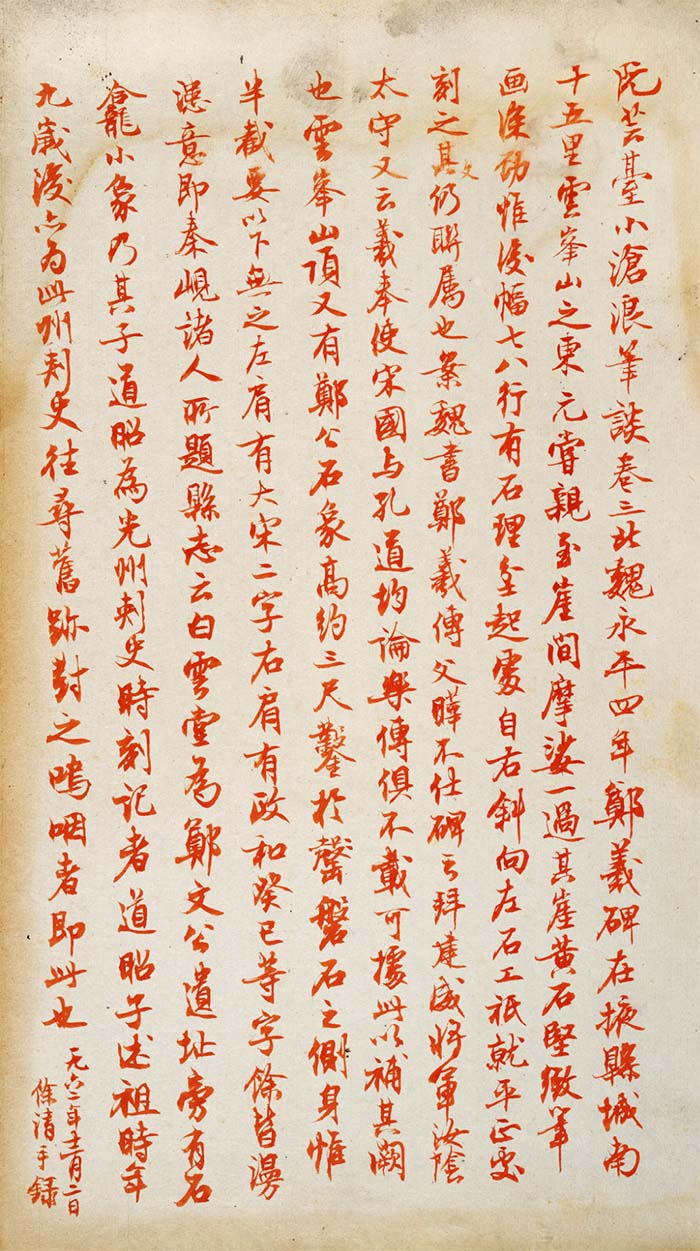 阮芸臺小滄浪筆談卷三北魏永平四年鄭羲碑在掖縣城南
十五里雲峯山之東元嘗親至崖間摩挲一過其崖黃石堅緻筆
画深劲惟後幅七八行有石理坌起處自右斜向左石工祇就平正處
刻之其文仍聯屬也案魏書鄭羲傳父曄不仕碑云拜建威將軍汝陰
太守又云羲奉使宋國与孔道均論樂傳俱不載可據此以補其闕
也雲峯山頂又有鄭公石象高約三尺鑿於罄磐石之側身惟
半截要以下無之左肩有大宋二字右肩有政和癸巳等字餘皆漫
漶意即秦峴諸人所題縣志云白雲堂為鄭文公遺址旁有石
龕小象乃其子道昭為光州刺史時刻記者道昭子述祖時年
九歲後亦为此州刺史往尋舊跡對之嗚咽者即此也
一九六二年十二月二日
餘清手錄